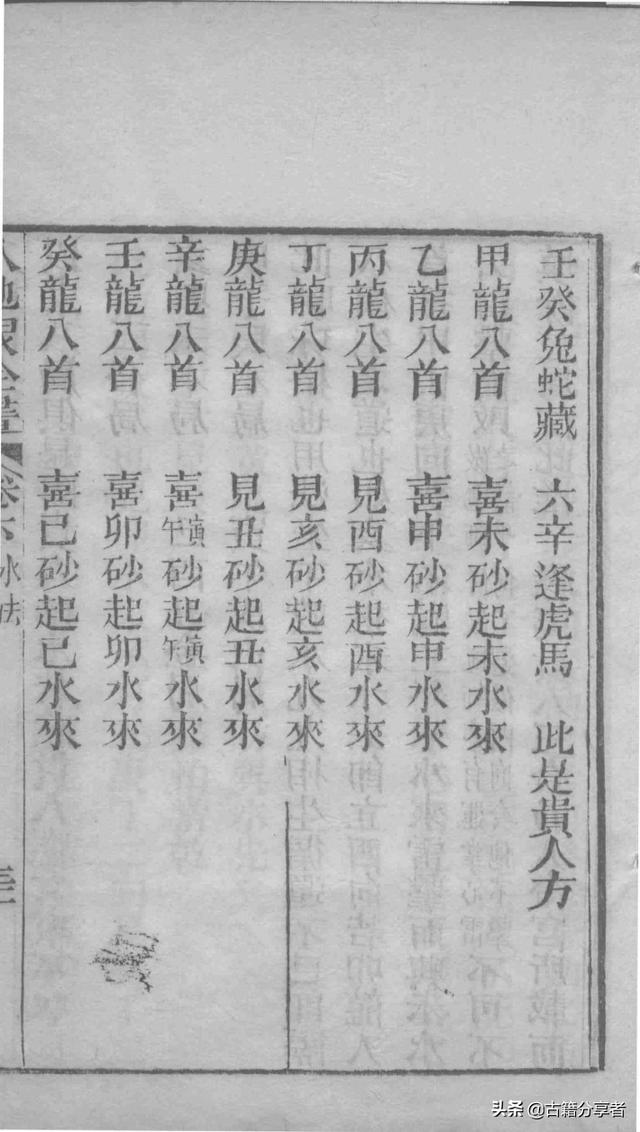 壬癸兔蛇藏 六辛逢虎馬 此是貴人方
甲龍八首 喜未砂起未水來
乙龍八首 喜申砂起申水來
丙龍八首 見酉砂起酉水來
丁龍八首 見亥砂起亥水來
庚龍八首 見丑砂起丑水來
辛龍八首 喜寅午砂起寅午水來
壬龍八首 喜卯砂起卯水來
癸龍八首 喜巳砂起巳水來
水法
头条 @古籍分享者